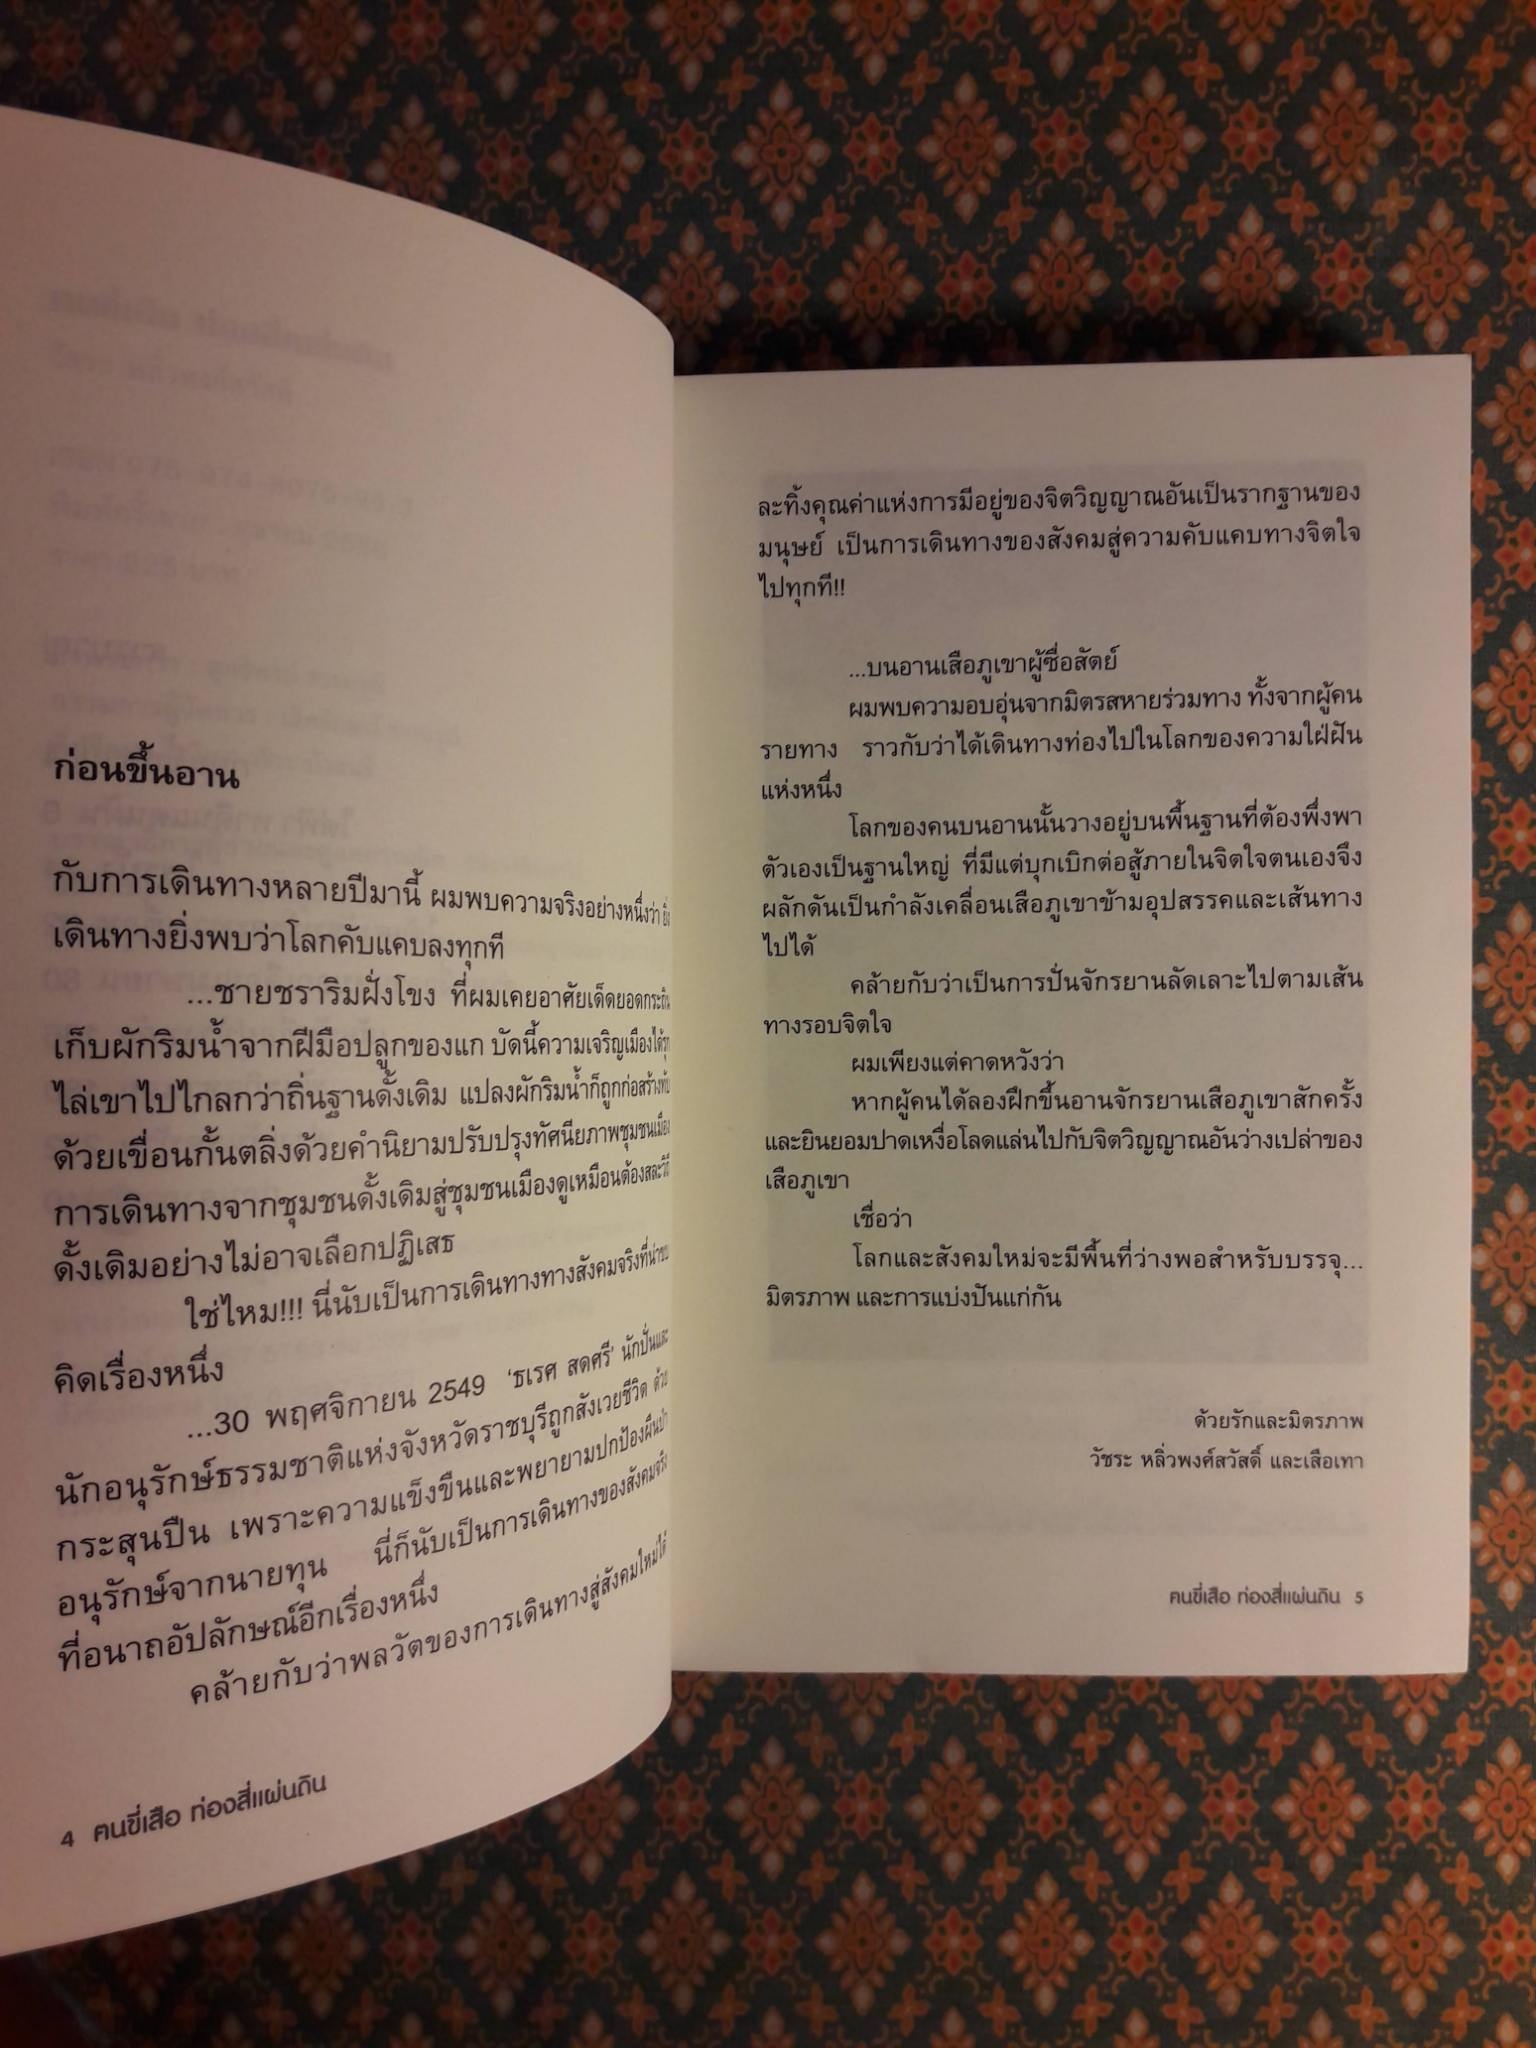 ก่อนขึ้นอาน
กับการเดินทางหลายปีมานี้ ผมพบความจริงอย่างหนึ่งว่า ยิ่ง
เดินทางยิ่งพบว่าโลกคับแคบลงทุกที
...ชายชราริมฝั่งโขง ที่ผมเคยอาศัยเด็ดยอดกระถิน
เก็บผักริมน้ำจากฝีมือปลูกของแก บัดนี้ความเจริญเมืองได้รุก
ไล่เขาไปไกลกว่าถิ่นฐานดั้งเดิม แปลงผักริมน้ำก็ถูกก่อสร้างทับ
ด้วยเขื่อนกั้นตลิ่งด้วยคำนิยามปรับปรุงทัศนียภาพชุมชนเมือง
การเดินทางจากชุมชนดั้งเดิมสู่ชุมชนเมืองดูเหมือนต้องสละวิถี
ดั้งเดิมอย่างไม่อาจเลือกปฏิเสธ
ใช่ไหม!!! นี่นับเป็นการเดินทางทางสังคมจริงที่น่าขบ
คิดเรื่องหนึ่ง
...30 พฤศจิกายน 2549 'ธเรศ สดศรี' นักปั่นและ
นักอนุรักษ์ธรรมชาติแห่งจังหวัดราชบุรีถูกสังเวยชีวิต ด้วย
กระสุนปืน เพราะความแข็งขืนและพยายามปกป้องผืนป่า
อนุรักษ์จากนายทุน นี่ก็นับเป็นการเดินทางของสังคมจริง
ที่อนาถอัปลักษณ์อีกเรื่องหนึ่ง
คล้ายกับว่าพลวัตของการเดินทางสู่สังคมใหม่ได้
4 คนขี่เสือ ท่องสี่แผ่นดิน
ละทิ้งคุณค่าแห่งการมีอยู่ของจิตวิญญาณอันเป็นรากฐานของ
มนุษย์ เป็นการเดินทางของสังคมสู่ความคับแคบทางจิตใจ
ไปทุกที!!
...บนอานเสือภูเขาผู้ซื่อสัตย์
ผมพบความอบอุ่นจากมิตรสหายร่วมทาง ทั้งจากผู้คน
รายทาง ราวกับว่าได้เดินทางท่องไปในโลกของความใฝ่ฝัน
แห่งหนึ่ง
โลกของคนบนอานนั้นวางอยู่บนพื้นฐานที่ต้องพึ่งพา
ตัวเองเป็นฐานใหญ่ ที่มีแต่บุกเบิกต่อสู้ภายในจิตใจตนเองจึง
ผลักดันเป็นกำลังเคลื่อนเสือภูเขาข้ามอุปสรรคและเส้นทาง
ไปได้
คล้ายกับว่าเป็นการปั่นจักรยานลัดเลาะไปตามเส้น
ทางรอบจิตใจ
ผมเพียงแต่คาดหวังว่า
หากผู้คนได้ลองฝึกขึ้นอานจักรยานเสือภูเขาสักครั้ง
และยินยอมปาดเหงื่อโลดแล่นไปกับจิตวิญญาณอันว่างเปล่าของ
เสือภูเขา
เชื่อว่า
โลกและสังคมใหม่จะมีพื้นที่ว่างพอสำหรับบรรจุ...
มิตรภาพ และการแบ่งปันแก่กัน
ด้วยรักและมิตรภาพ
วัชระ หลิ่วพงศ์สวัสดิ์ และเสือเทา
คนขี่เสือ ท่องสี่แผ่นดิน 5